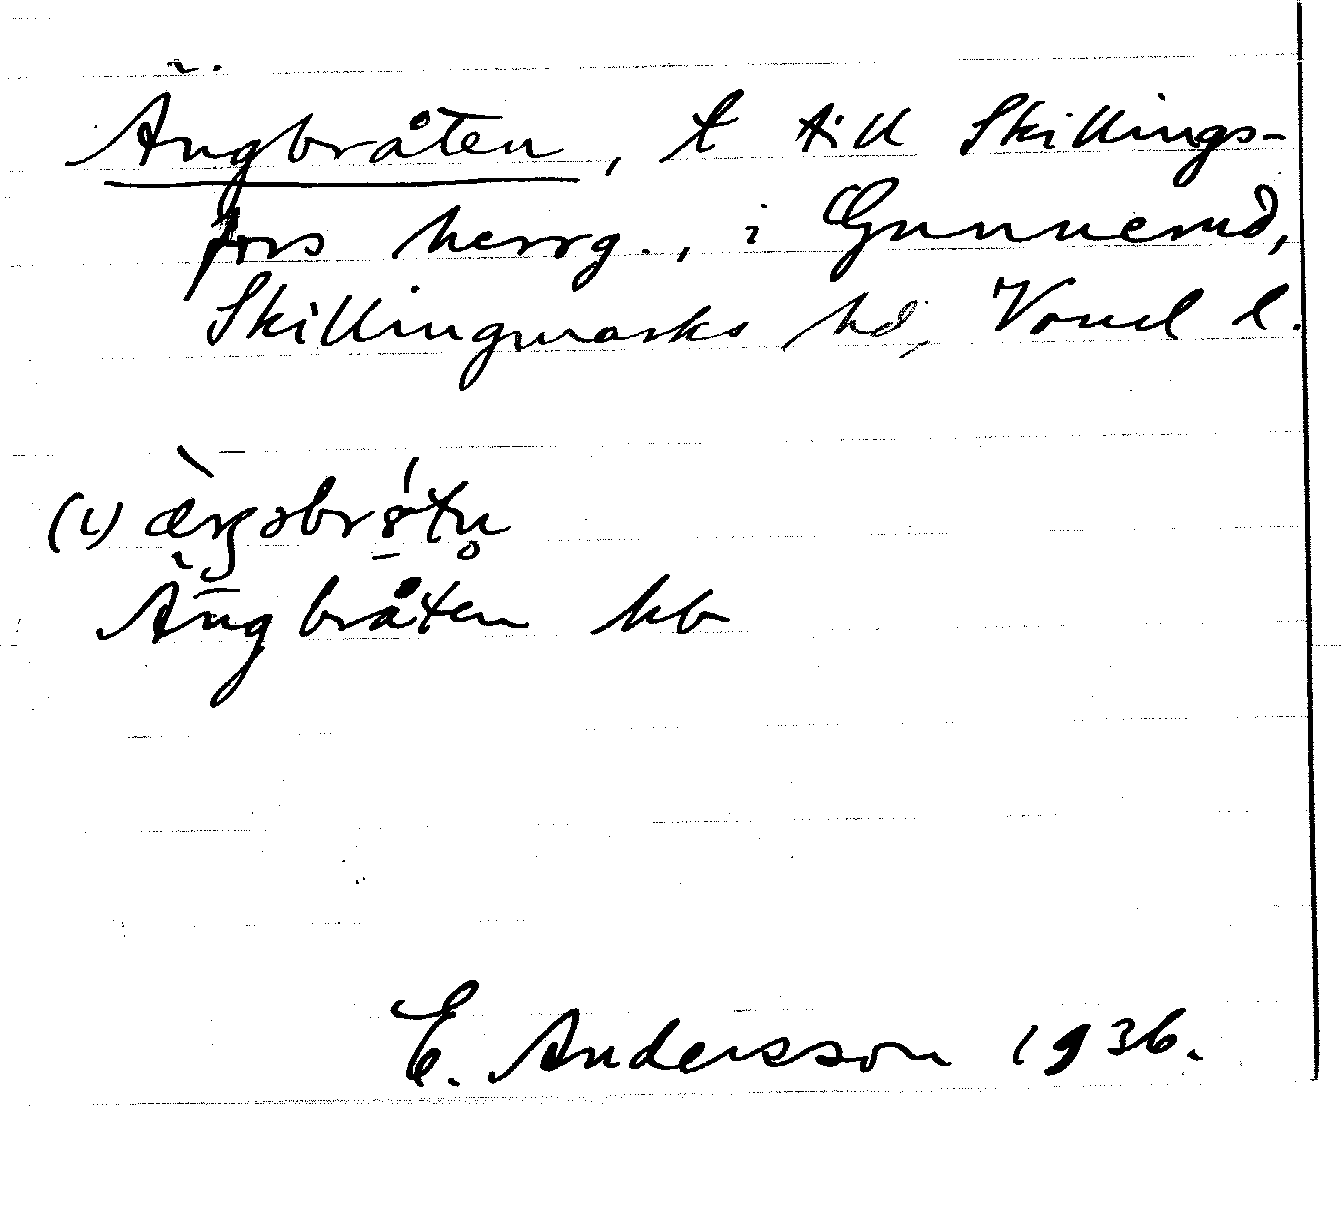 Ängbråten, t till Skillings-
fors herrg., i Gunnerud,
Skillingmarks hd, Värml l.
(i)
Ängbråten kb
E. Andersson 1936.